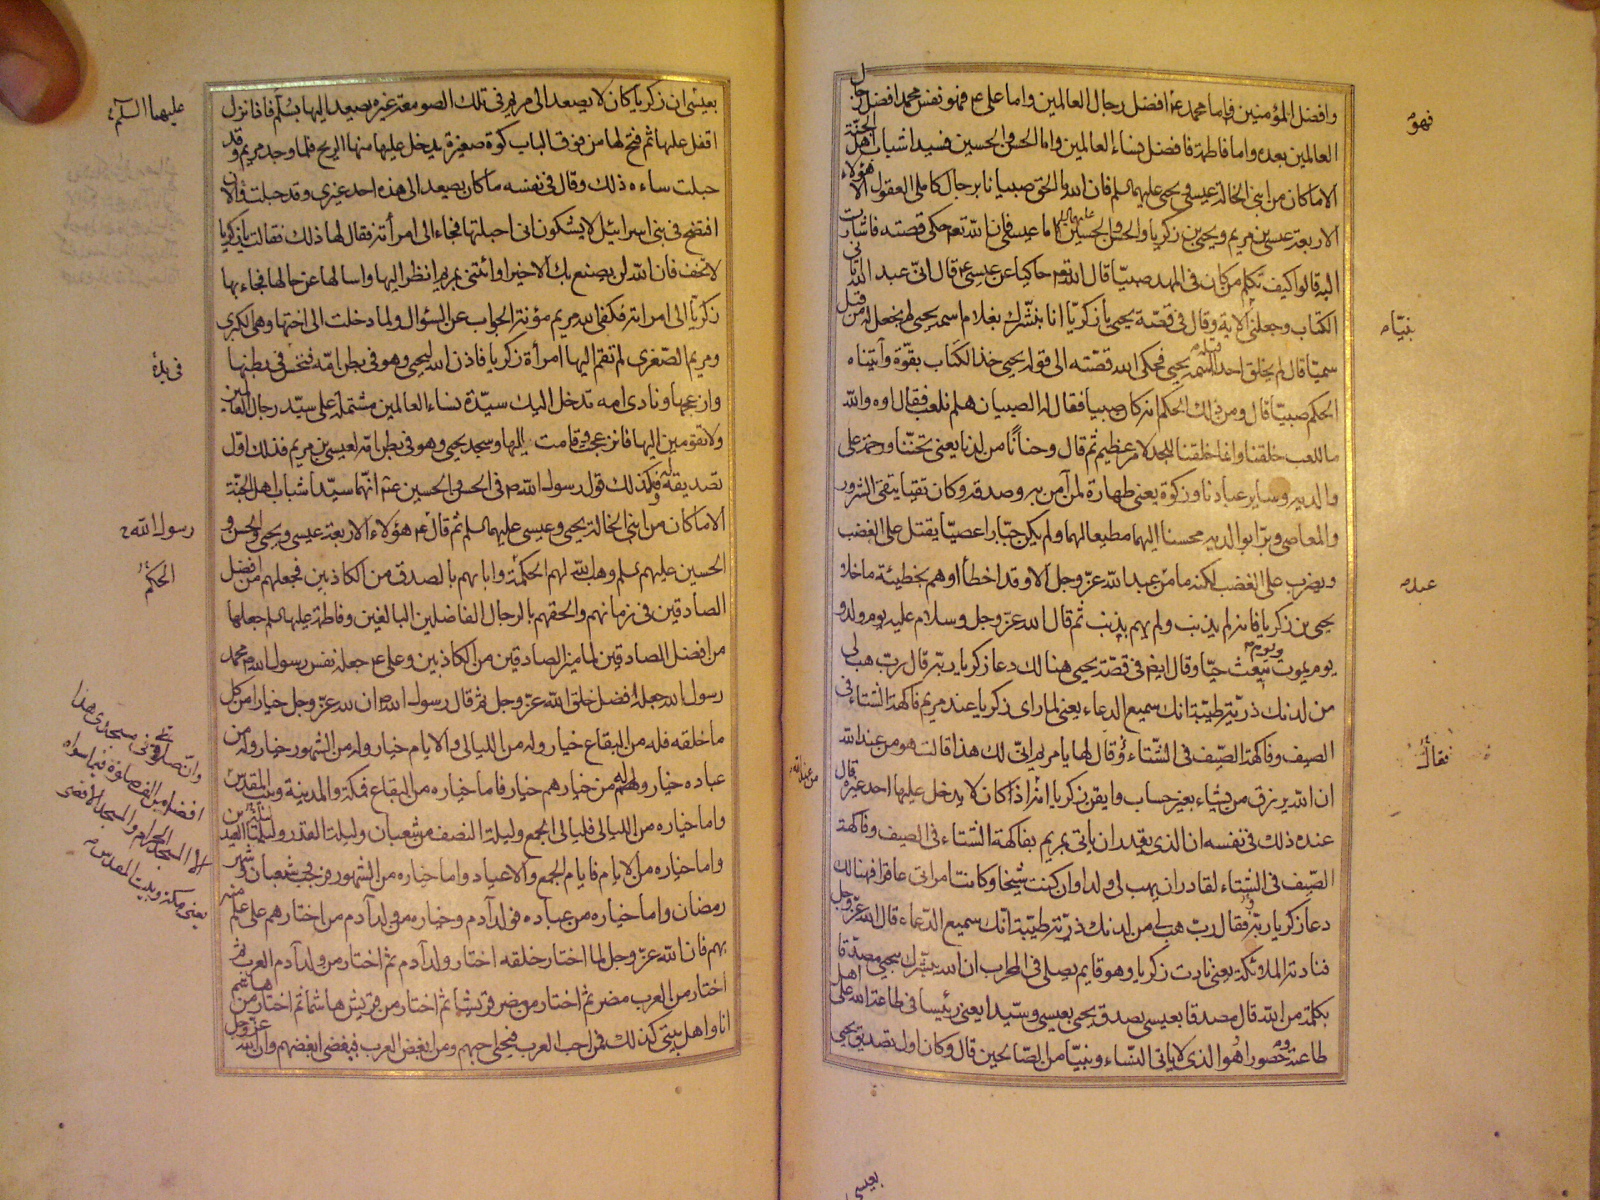 وافضل المؤمنين فاما محمد ع افضل رجال العالمين واما على ع فهو نفس محمد افضل رجال
العالمين بعده واما فاطمة فافضل نساء العالمين واما الحسن والحسين فسيدا شباب اهل الجنة
الا ما كان من ابنى الخالة عيسى ويحيى عليهما السلم فان الله ما الحق صبيانا برجال كاملى العقول الا هؤلاء
الاربعة عيسى بن مريم ويحيى بن زكريا والحسن والحسين عليهم السلم اما عيسى فان الله تعم حكى قصته فاشارت
اليه قالوا كيف نكلم من كان فى المهد صبيا قال الله تعم حاكيا عن عيسى ع قال انى عبد الله اتانى
الكتاب وجعلنى الاية وقال فى قصة يحيى يا زكريا انا نبشرك بغلام اسمه يحيى لم نجعل له من قبل
سميا قال لم يخلق احدا قبله اسمه يحيى فحكى الله قصته الى قوله يا يحيى خذ الكتاب بقوة وآتيناه
الحكم صبيا قال ومن ذلك الحكم انه كان صبيا فقال له الصبيان هلم نلعب فقال اوه والله
ما للعب خلقنا وانما خلقنا للجد لامر عظيم ثم قال وحنانا من لدنا يعنى تحننا ورحمة على
والديه وساير عبادنا وزكوة يعنى طهارة لمن آمن به وصدقه وكان تقيا يتقى الشرور
والمعاصى وبرا بوالديه محسنا اليهما مطيعا لهما ولم يكن جبارا عصيا يقتل على الغضب
ويضرب على الغضب لكنه ما من عبد الله عز وجل الا وقد اخطأ او هم بخطيئة ما خلا
يحيى بن زكريا فانه لم يذنب ولم يهم بذنب ثم قال الله عز وجل وسلام عليه يوم ولد و
يوم يموت ويوم يبعث حيا وقال ايضم فى قصة يحيى هنالك دعا زكريا ربه قال رب هب لى
من لدنك ذرية طيبة انك سميع الدعاء يعنى لما راى زكريا عند مريم فاكهة الشتاء فى
الصيف وفاكهة الصيف فى الشتاء وقال لها يا مريم انى لك هذا قالت هو من عند الله
ان الله يرزق من يشاء بغير حساب وايقن زكريا انه اذا كان لا يدخل عليها احد غيره قال
عند ذلك فى نفسه ان الذى يقدر ان ياتى مريم بفاكهة الشتاء فى الصيف وفاكهة
الصيف فى الشتاء لقادر ان يهب لى ولدا وان كنت شيخا وكانت امراتى عاقرا فهنالك
دعا زكريا ربه فقال رب هب لى من لدنك ذرية طيبة انك سميع الدعاء قال الله عز وجل
فنادته الملائكة يعنى نادت زكريا وهو قايم يصلى فى المحراب ان الله يبشرك بيحيى مصدقا
بكلمة من الله قال مصدقا بعيسى يصدق يحيى بعيسى وسيدا يعنى رئيسا فى طاعة الله على اهل
طاعته وحصورا وهو الذى لا ياتى النساء ونبيا من الصالحين قال وكان اول تصديق يحيى
فهو
نبيا
عبد
فقال
من عند الله
بعيسى
بعيسى ان زكريا كان لا يصعد الى مريم فى تلك الصومعة غيره يصعد اليها بسلم فاذا نزل
اقفل عليها ثم فتح لها من فوق الباب كوة صغيرة يدخل عليها منها الريح فلما وجد مريم وقد
حبلت ساءه ذلك وقال فى نفسه ما كان يصعد الى هذه احد غيرى وقد حبلت والان
افتضح فى بنى اسرائيل لا يشكون انى احبلتها فجاء الى امرأته فقال لها ذلك فقالت يا زكريا
لا تخف فان الله لن يصنع بك الا خيرا وائتنى بمريم انظر اليها واسالها عن حالها فجاء بها
زكريا الى امراته فكفى الله مريم مؤنة الجواب عن السؤال ولما دخلت الى اختها وهى الكبرى
ومريم الصغرى لم تقم اليها امرأة زكريا فاذن الله ليحيى وهو فى بطن امه فنخس فى بطنها
وازعجها ونادى امه تدخل اليك سيدة نساء العالمين مشتملة على سيد رجال العالمين
ولا تقومين اليها فانزعجت وقامت اليها وسجد يحيى وهو فى بطن امه لعيسى بن مريم فذلك اول
تصديقه له فكذلك قول رسول الله ص فى الحسن والحسين عم انهما سيدا شباب اهل الجنة
الا ما كان من ابنى الخالة يحيى وعيسى عليهما السلم ثم قال ع هؤلاء الاربعة عيسى ويحيى والحسن و
الحسين عليهم السلم وهب الله لهم الحكمة وابانهم بالصدق من الكاذبين فجعلهم من افضل
الصادقين فى زمانهم والحقهم بالرجال الفاضلين البالغين وفاطمة عليها السلم جعلها
من افضل الصادقين لما ميز الصادقين من الكاذبين وعلى ع جعله نفس رسول الله ص ومحمد
رسول الله جعله افضل خلق الله عز وجل ثم قال رسول الله ص ان لله عز وجل خيارا من كل
ما خلقه فله من البقاع خيار وله من الليالى والايام خيار وله من الشهور خيار وله من
عباده خيار وله من خيارهم خيار فاما خياره من البقاع فمكة والمدينة وبيت المقدس
واما خياره من الليالى فليالى الجمع وليلة النصف من شعبان وليلة القدر وليلتا العيدين
واما خياره من الايام فايام الجمع والاعياد واما خياره من الشهور فرجب وشعبان وشهر
رمضان واما خياره من عباده فولد آدم وخياره من ولد آدم من اختارهم على علم منه
بهم فان الله عز وجل لما اختار خلقه اختار ولد آدم ثم اختار من ولد آدم العرب ثم
اختار من العرب مضر ثم اختار من مضر قريشا ثم اختار من قريش هاشما ثم اختار من هاشم
انا واهل بيتى كذلك فمن احب العرب فبحبى احبهم ومن ابغض العرب فببغضى ابغضهم وان الله عز وجل
عليهما السلم
فى يده
رسول الله
الحكم
وان صلوة فى مسجدى هذا
افضل من الف صلوة فيما سواه
الا المسجد الحرام والمسجد الاقصى
يعنى مكة وبيت المقدس